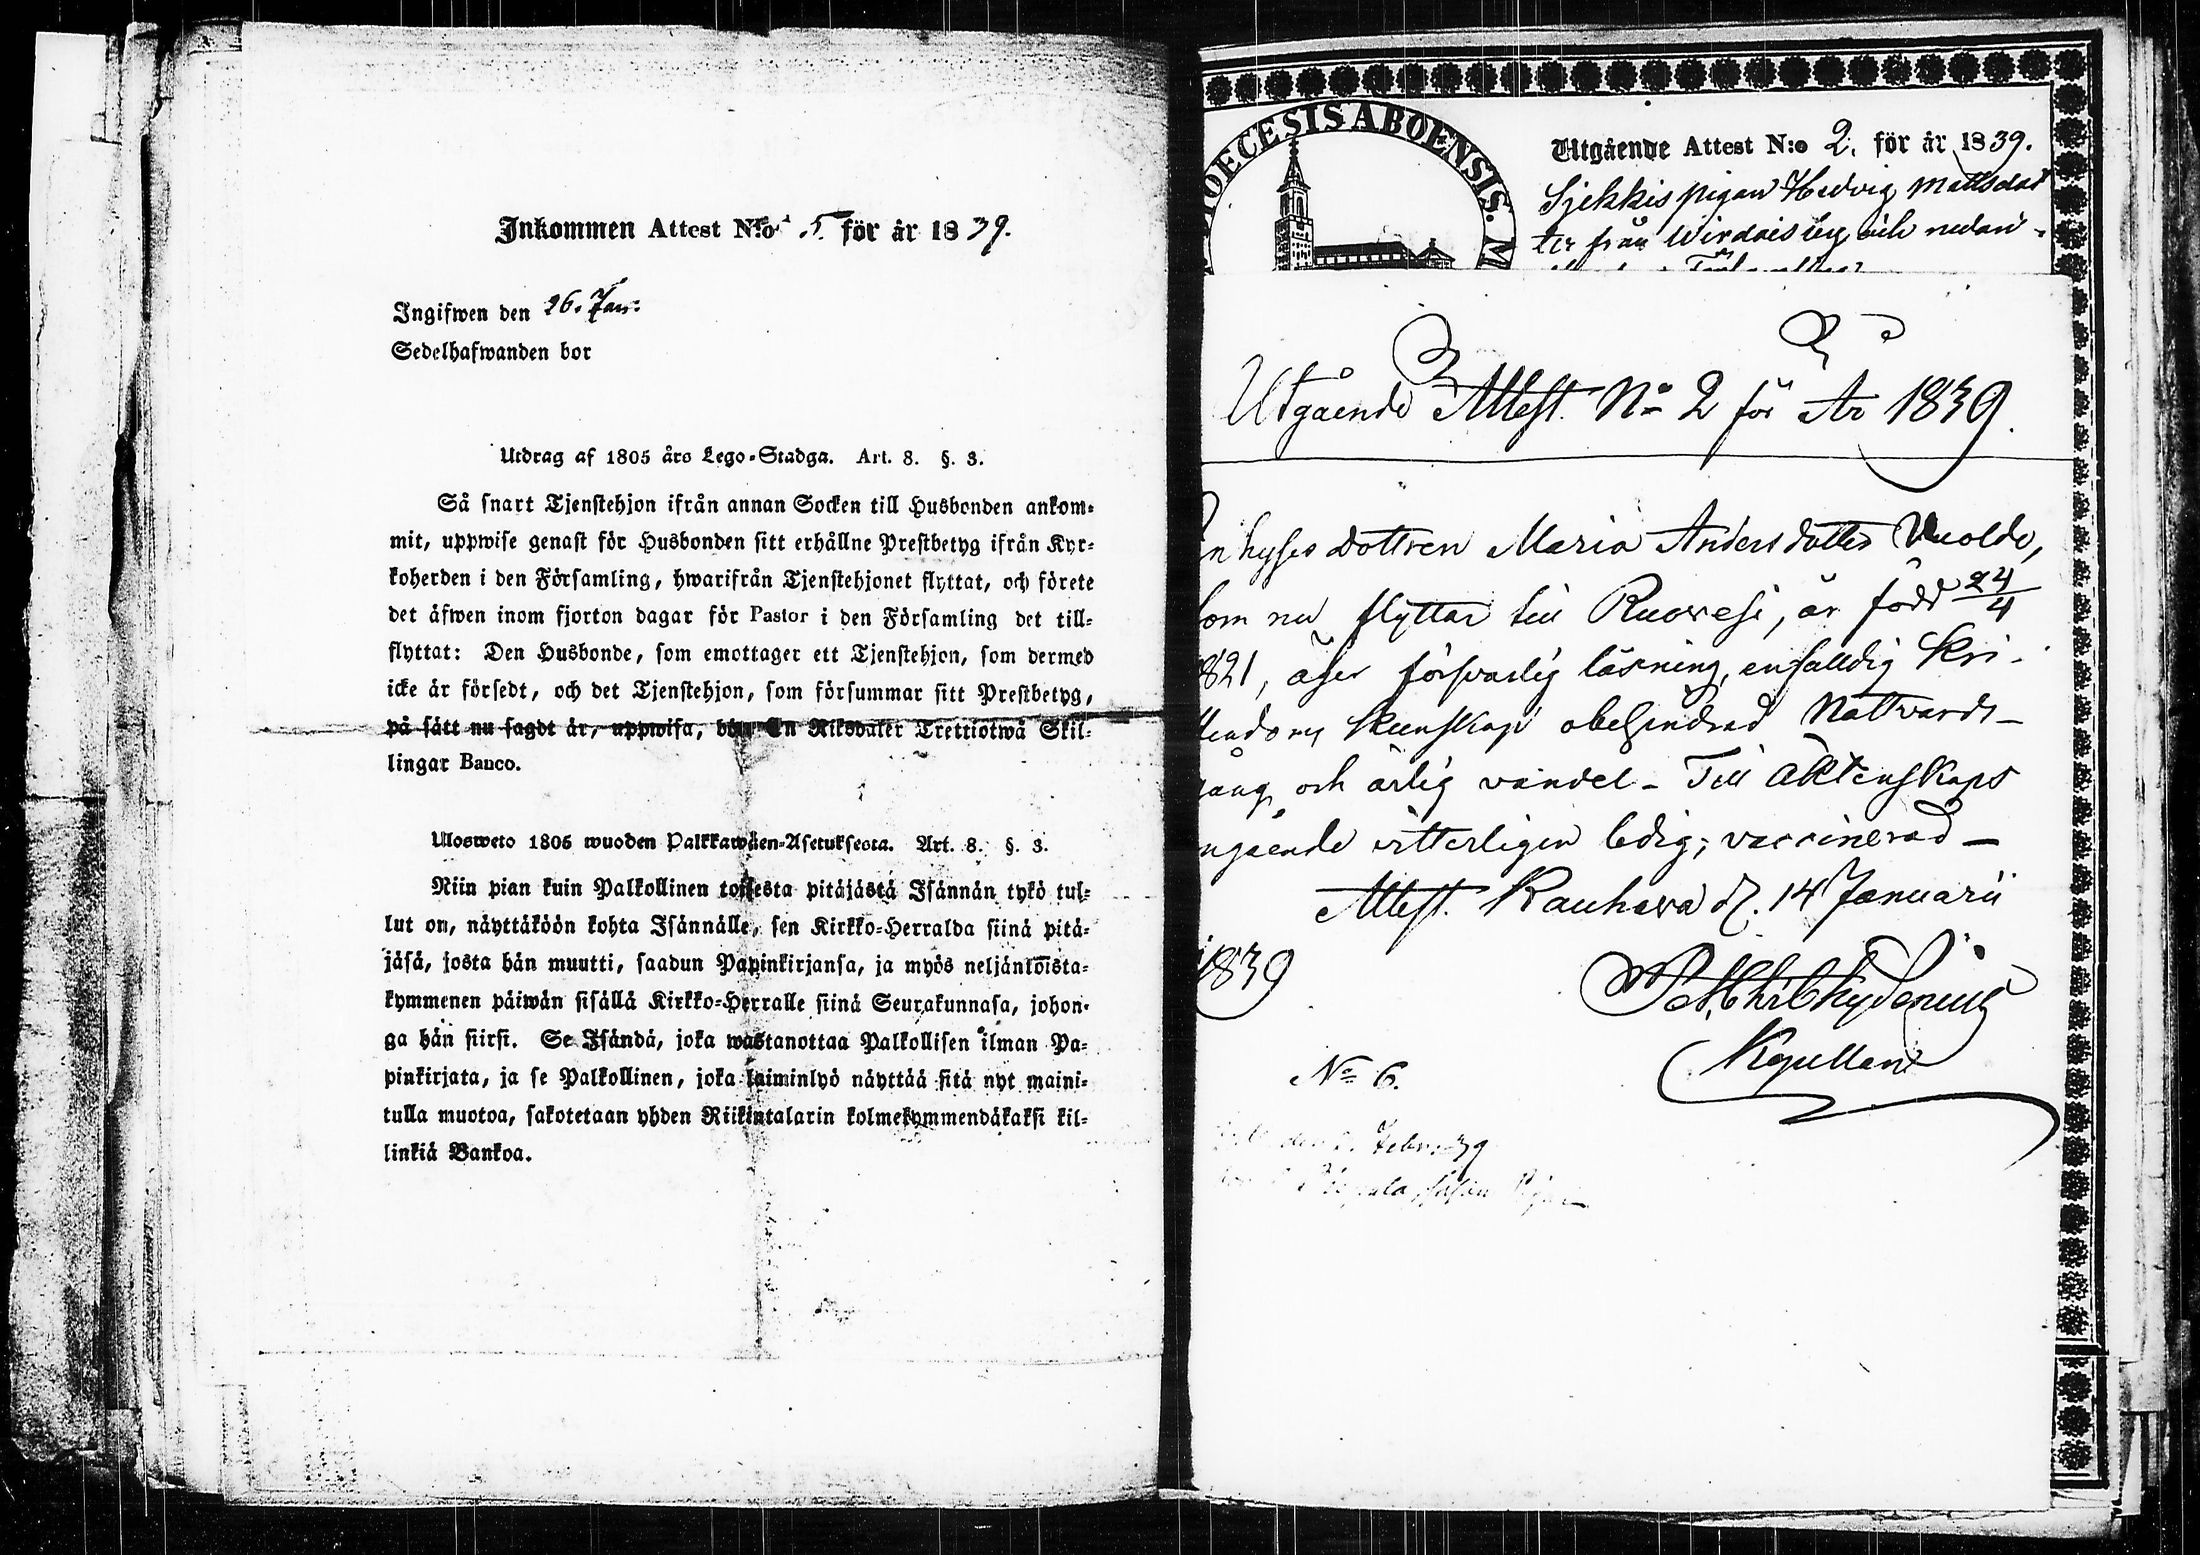 Inkommen Attest N:o 5. för år 1839.
Ingifwen den 26. Jan:
Sedelhafwanden bor
Utdrag af 1805 års Lego-Stadga. Art. 8. §. 3.
Så snart Tjenstehjon ifrån annan Socken till Husbonden ankom-
mit, uppwise genast för Husbonden sitt erhållne Prestbetyg ifrån Kyr-
koherden i den Församling, hwarifrån Tjenstehjonet flyttat, och förete
det äfwen inom fjorton dagar för Pastor i den Församling det till-
flyttat: Den Husbonde, som emottager ett Tjenstehjon, som dermed
icke är försedt, och det Tjenstehjon, som försummar sitt Prestbetyg,
på sätt nu sagdt är, uppwisa, böte En Riksdaler Trettiotwå Skil-
lingar Banco.
Ulosweto 1805 wuoden Palkkawäen-Asetuksesta. Art. 8. §. 3.
Niin pian kuin Palkollinen toisesta pitäjästä Isännän tykö tul-
lut on, näyttäköön kohta Isännälle, sen Kirkko-Herralda siinä pitä-
jäsä, josta hän muutti, saadun Papinkirjansa, ja myös neljäntoista-
kymmenen päiwän sisällä Kirkko-Herralle siinä Seurakunnasa, johon-
ga hän siirsi. Se Isändä, joka wastanottaa Palkollisen ilman Pa-
pinkirjata, ja se Palkollinen, joka laiminlyö näyttää sitä nyt maini-
tulla muotoa, sakotetaan yhden Riikintalarin kolmekymmendäkaksi kil-
linkiä Bankoa.
DIOECESIS ABOENSIS. M
Utgående Attest N:o 2. för år 1839.
pigan Hedvig Mattsdot
ter från Wirdois by och nedan-
Utgående Attest. No 2 för År 1839.
hyses dottren Maria Anders dotter Wuolde,
som nu flyttar till Ruovesi, är född 24/4
1821, äger försvarlig läsning, enfalldig Kri-
stendoms Kunskap obehindrad Nattvards-
gång och ärlig vandel - Till Äktenskaps
ingående vitterligen ledig; vaccinerad -
Attest. Kauhava d. 14 Januarii
1839
Chydenius
Kapellan
No 6.
den Febr. 39